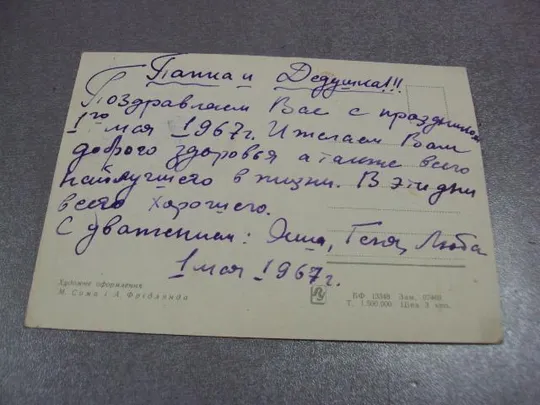 Папка и Дедушка!!!
Поздравляем Вас с праздником
1го мая 1967г. И желаем Вам
доброго здоровья а также всего
наилучшего в жизни. В эти дни
всего хорошего.
С уважением: Эмма, Геня, Люба
1 мая 1967г.
Художнє оформлення
М. Сома і А. Фрідлянда
БФ. 03548 Зам. 07460
Т. 1.500.000 Ціна 3 коп.